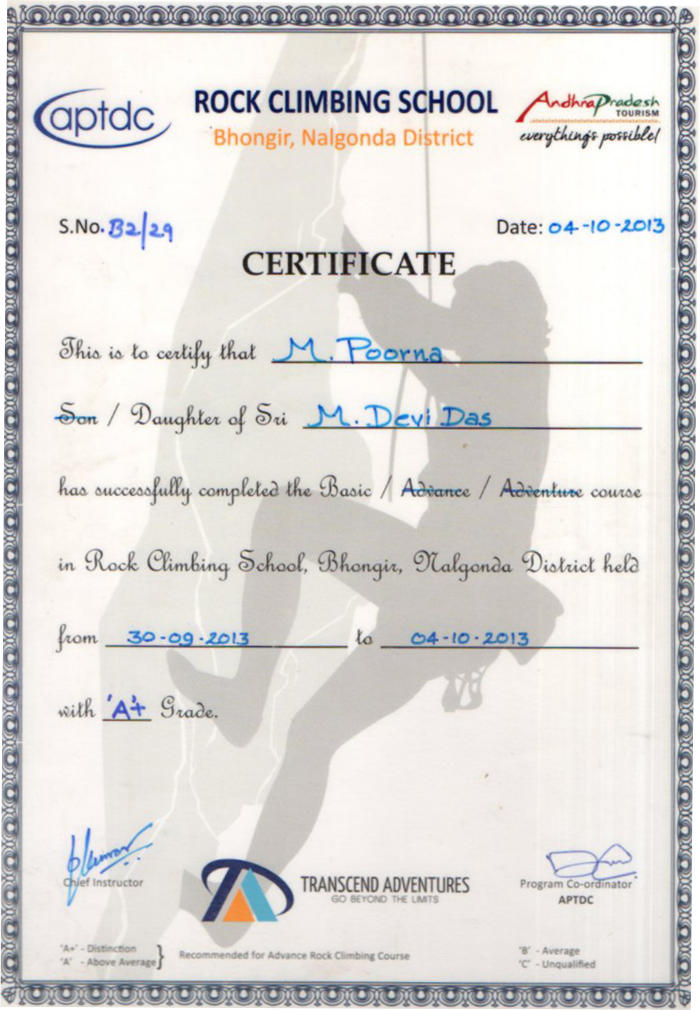 aptdc
ROCK CLIMBING SCHOOL
Bhongir, Nalgonda District
Andhra Pradesh
TOURISM
everything's possible!
S.No. B2/29
Date: 04-10-2013
CERTIFICATE
This is to certify that M. Poorna
Son / Daughter of Sri M. Devi Das
has successfully completed the Basic / Advance / Adventure course
in Rock Climbing School, Bhongir, Nalgonda District held
from 30-09-2013 to 04-10-2013
with 'A+' Grade.
Chief Instructor
TRANSCEND ADVENTURES
GO BEYOND THE LIMITS
Program Co-ordinator
APTDC
'A+' - Distinction
'A' - Above Average
Recommended for Advance Rock Climbing Course
'B' - Average
'C' - Unqualified